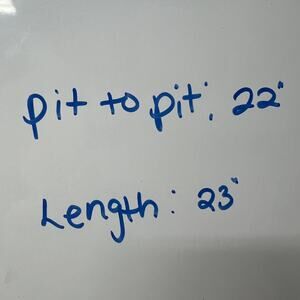 pit to pit: 22"
Length: 23"